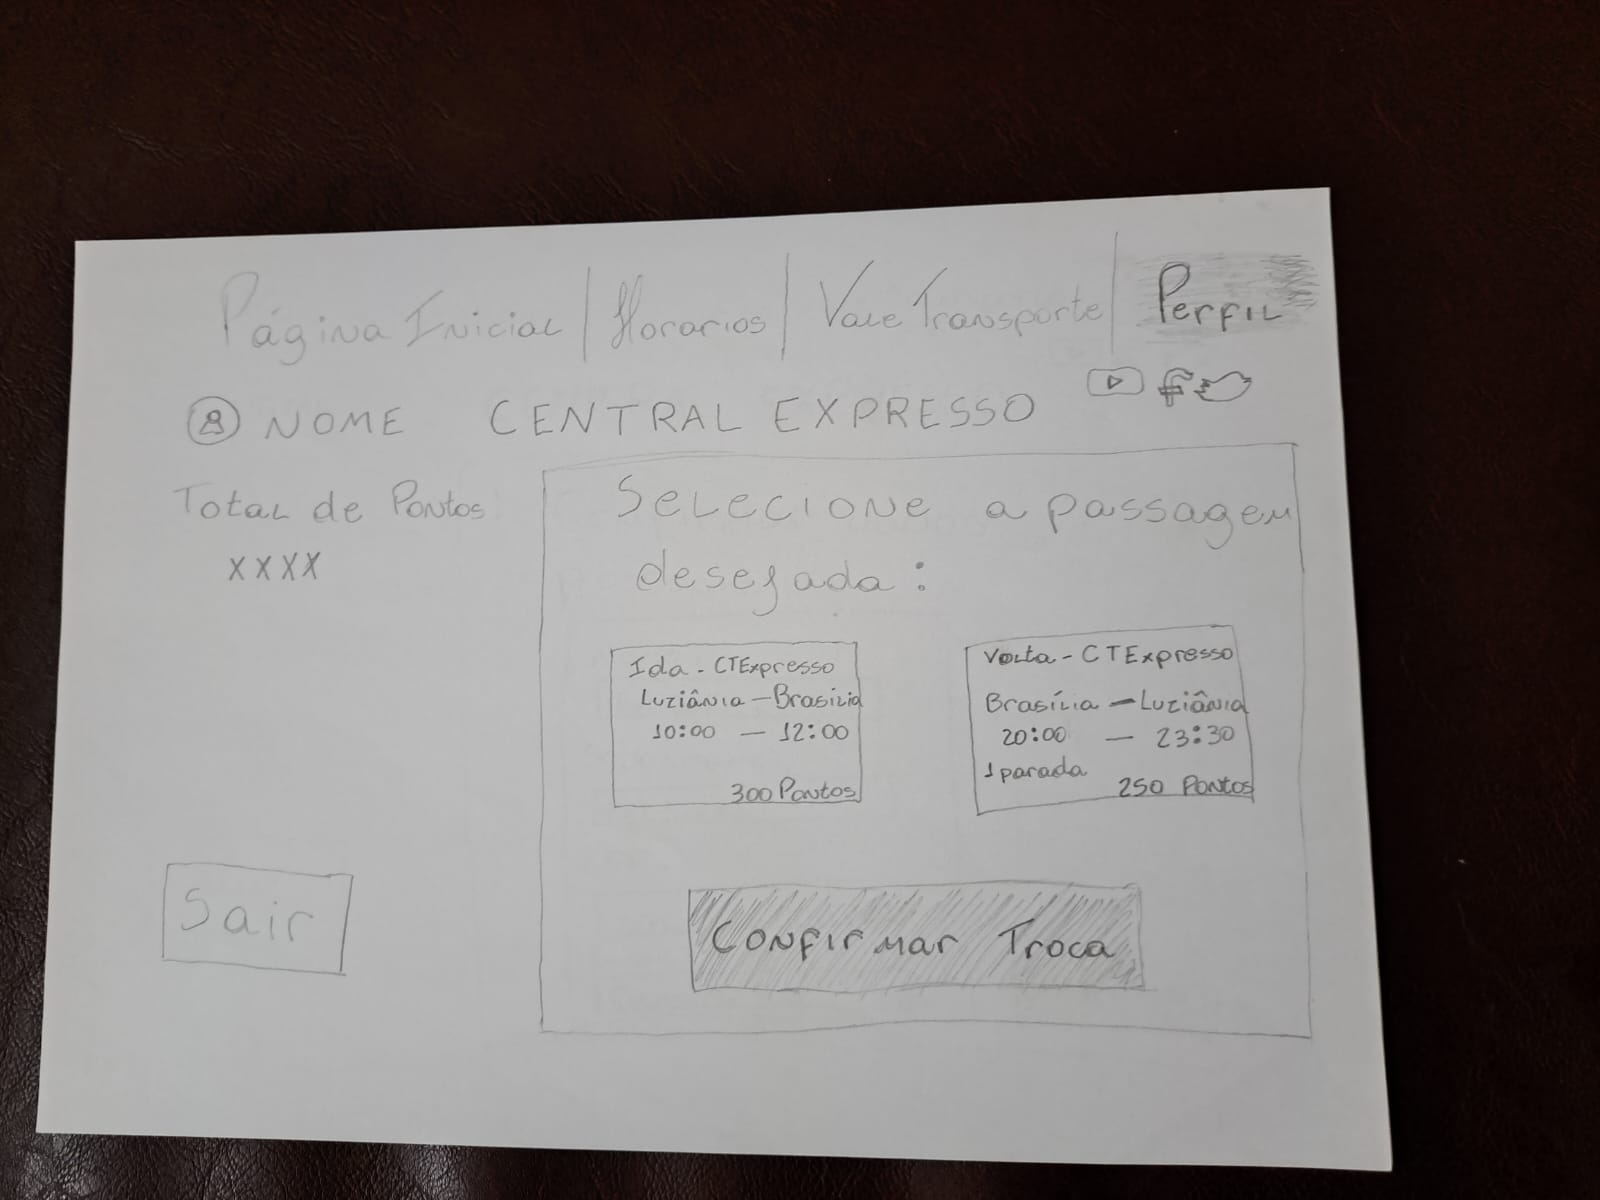 Página Inicial | Horarios | Vale Transporte | Perfil
NOME CENTRAL EXPRESSO
Total de Pontos
XXXX
Selecione a passagem
desejada:
Ida - CTExpresso
Luziânia - Brasília
10:00 - 12:00
300 Pontos
Volta - CTExpresso
Brasília - Luziânia
20:00 - 23:30
1 parada
250 Pontos
Sair
Confirmar Troca